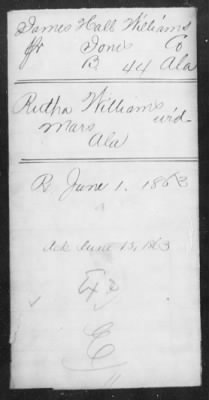 James Hall Williams
Jones Co
B. 44 Ala
Ridtha Williams
Mars wid-
Ala
R June 1. 1863
Ack June 15, 1863
Ex
E